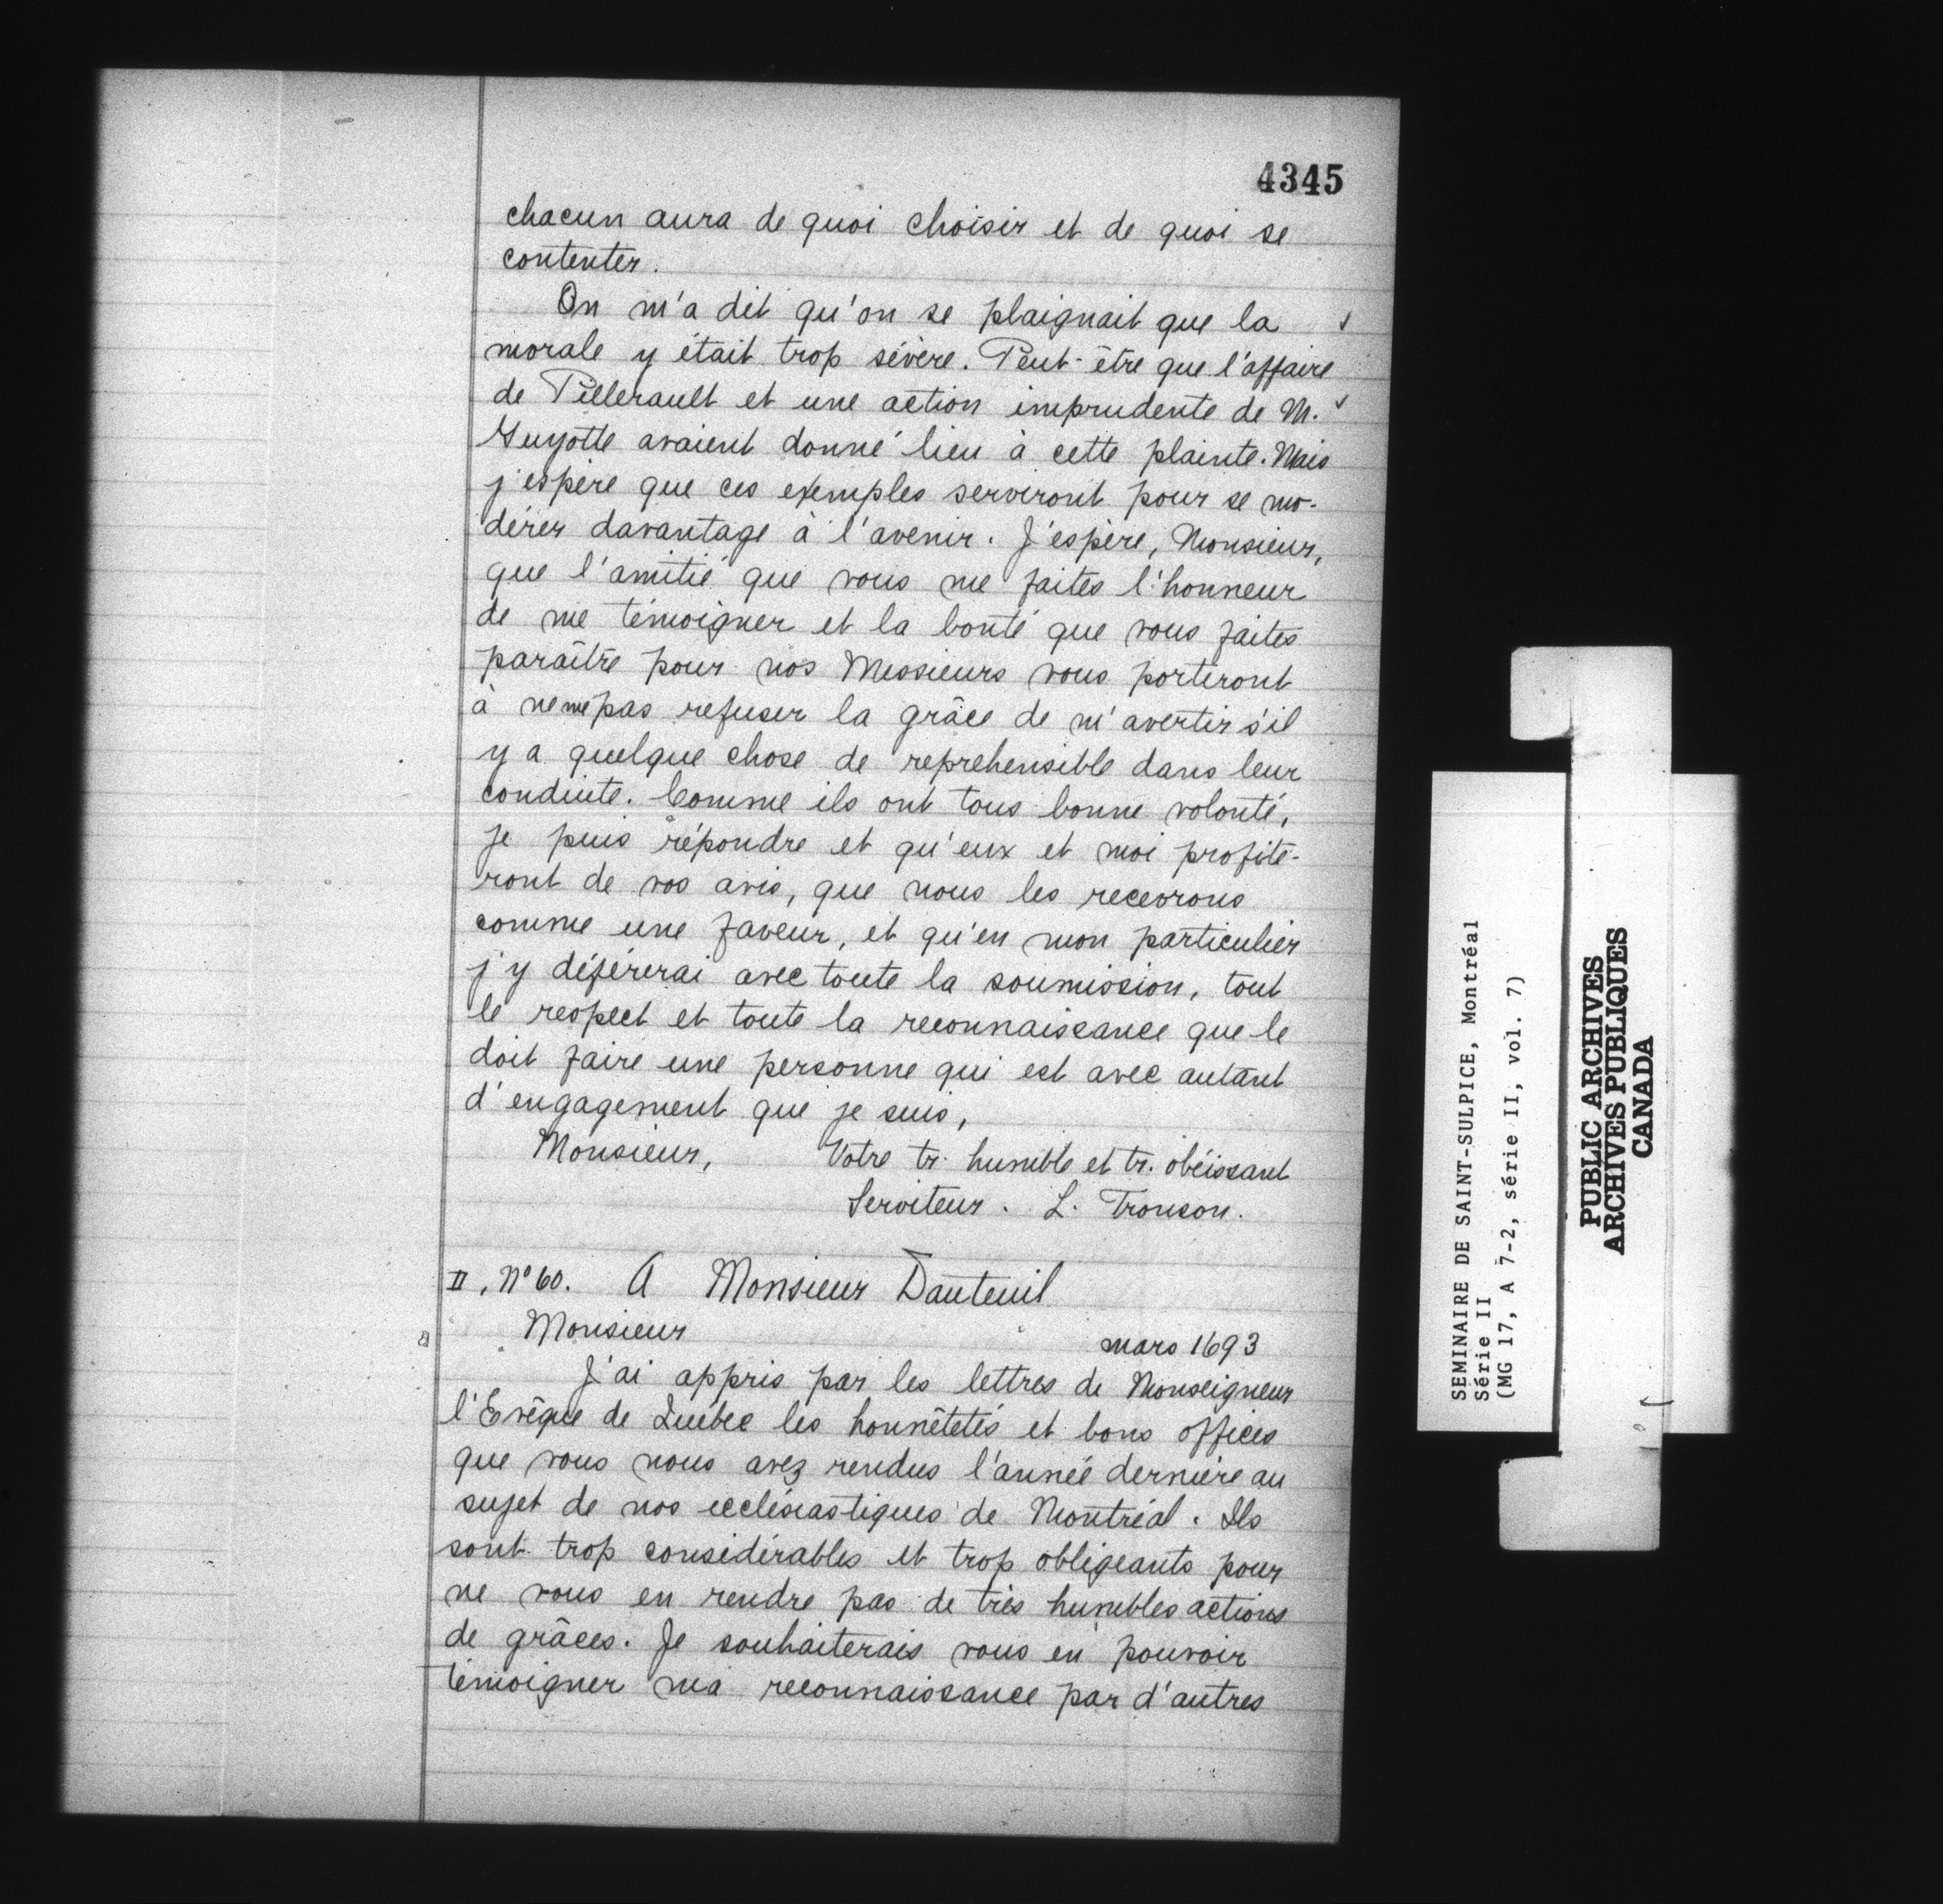 4345
chacun aura de quoi choisir et de quoi se
contenter.
On m'a dit qu'on se plaignait que la
morale y était trop sévère. Peut-être que l'affaire
de Pillerault et une action imprudente de M.
Guyotte avaient donné lieu à cette plainte. Mais
j'espère que ces exemples serviront pour se mo-
dérer davantage à l'avenir. J'espère, Monsieur,
que l'amitié que vous me faites l'honneur
de me témoigner et la bonté que vous faites
paraître pour nos Messieurs vous porteront
à ne me pas refuser la grâce de m'avertir s'il
y a quelque chose de reprehensible dans leur
conduite. Comme ils ont tous bonne volonté,
je puis répondre et qu'eux et moi profite-
ront de vos avis, que nous les recevrons
comme une faveur, et qu'en mon particulier
j'y déférerai avec toute la soumission, tout
le respect et toute la reconnaissance que le
doit faire une personne qui est avec autant
d'engagement que je suis,
Monsieur, Votre tr. humble et tr. obéissant
Serviteur. L. Tronson.
II, No 60. A Monsieur Dauteuil
Monsieur mars 1693
J'ai appris par les lettres de Monseigneur
l'Evêque de Québec les honnêtetés et bons offices
que vous nous avez rendus l'année dernière au
sujet de nos ecclésiastiques de Montréal. Ils
sont trop considérables et trop obligeants pour
ne vous en rendre pas de très humbles actions
de grâces. Je souhaiterais vous en pouvoir
témoigner ma reconnaissance par d'autres
SEMINAIRE DE SAINT-SULPICE, Montréal
Série II
(MG 17, A 7-2, série II, vol. 7)
PUBLIC ARCHIVES
ARCHIVES PUBLIQUES
CANADA